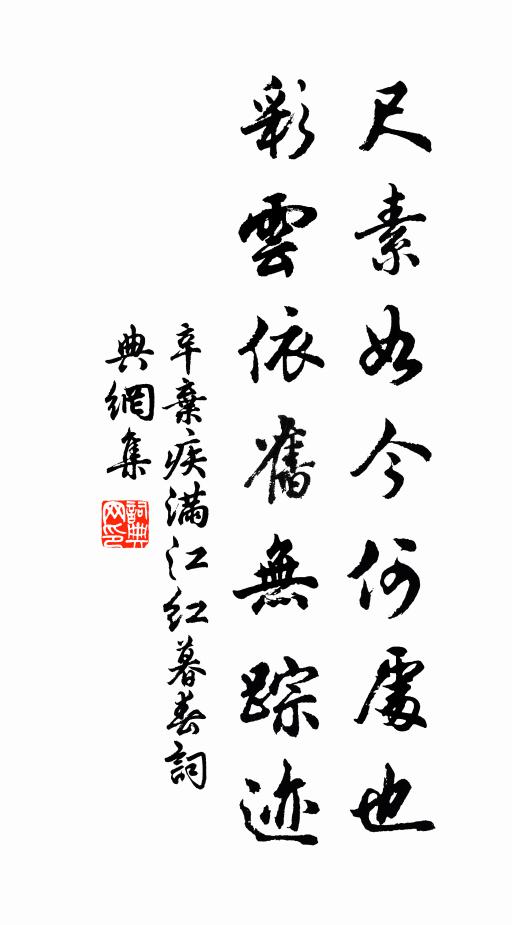 尺素如今何處也
彩雲依舊無踪迹
辛棄疾滿江紅暮春詞
典網集
詞典網印